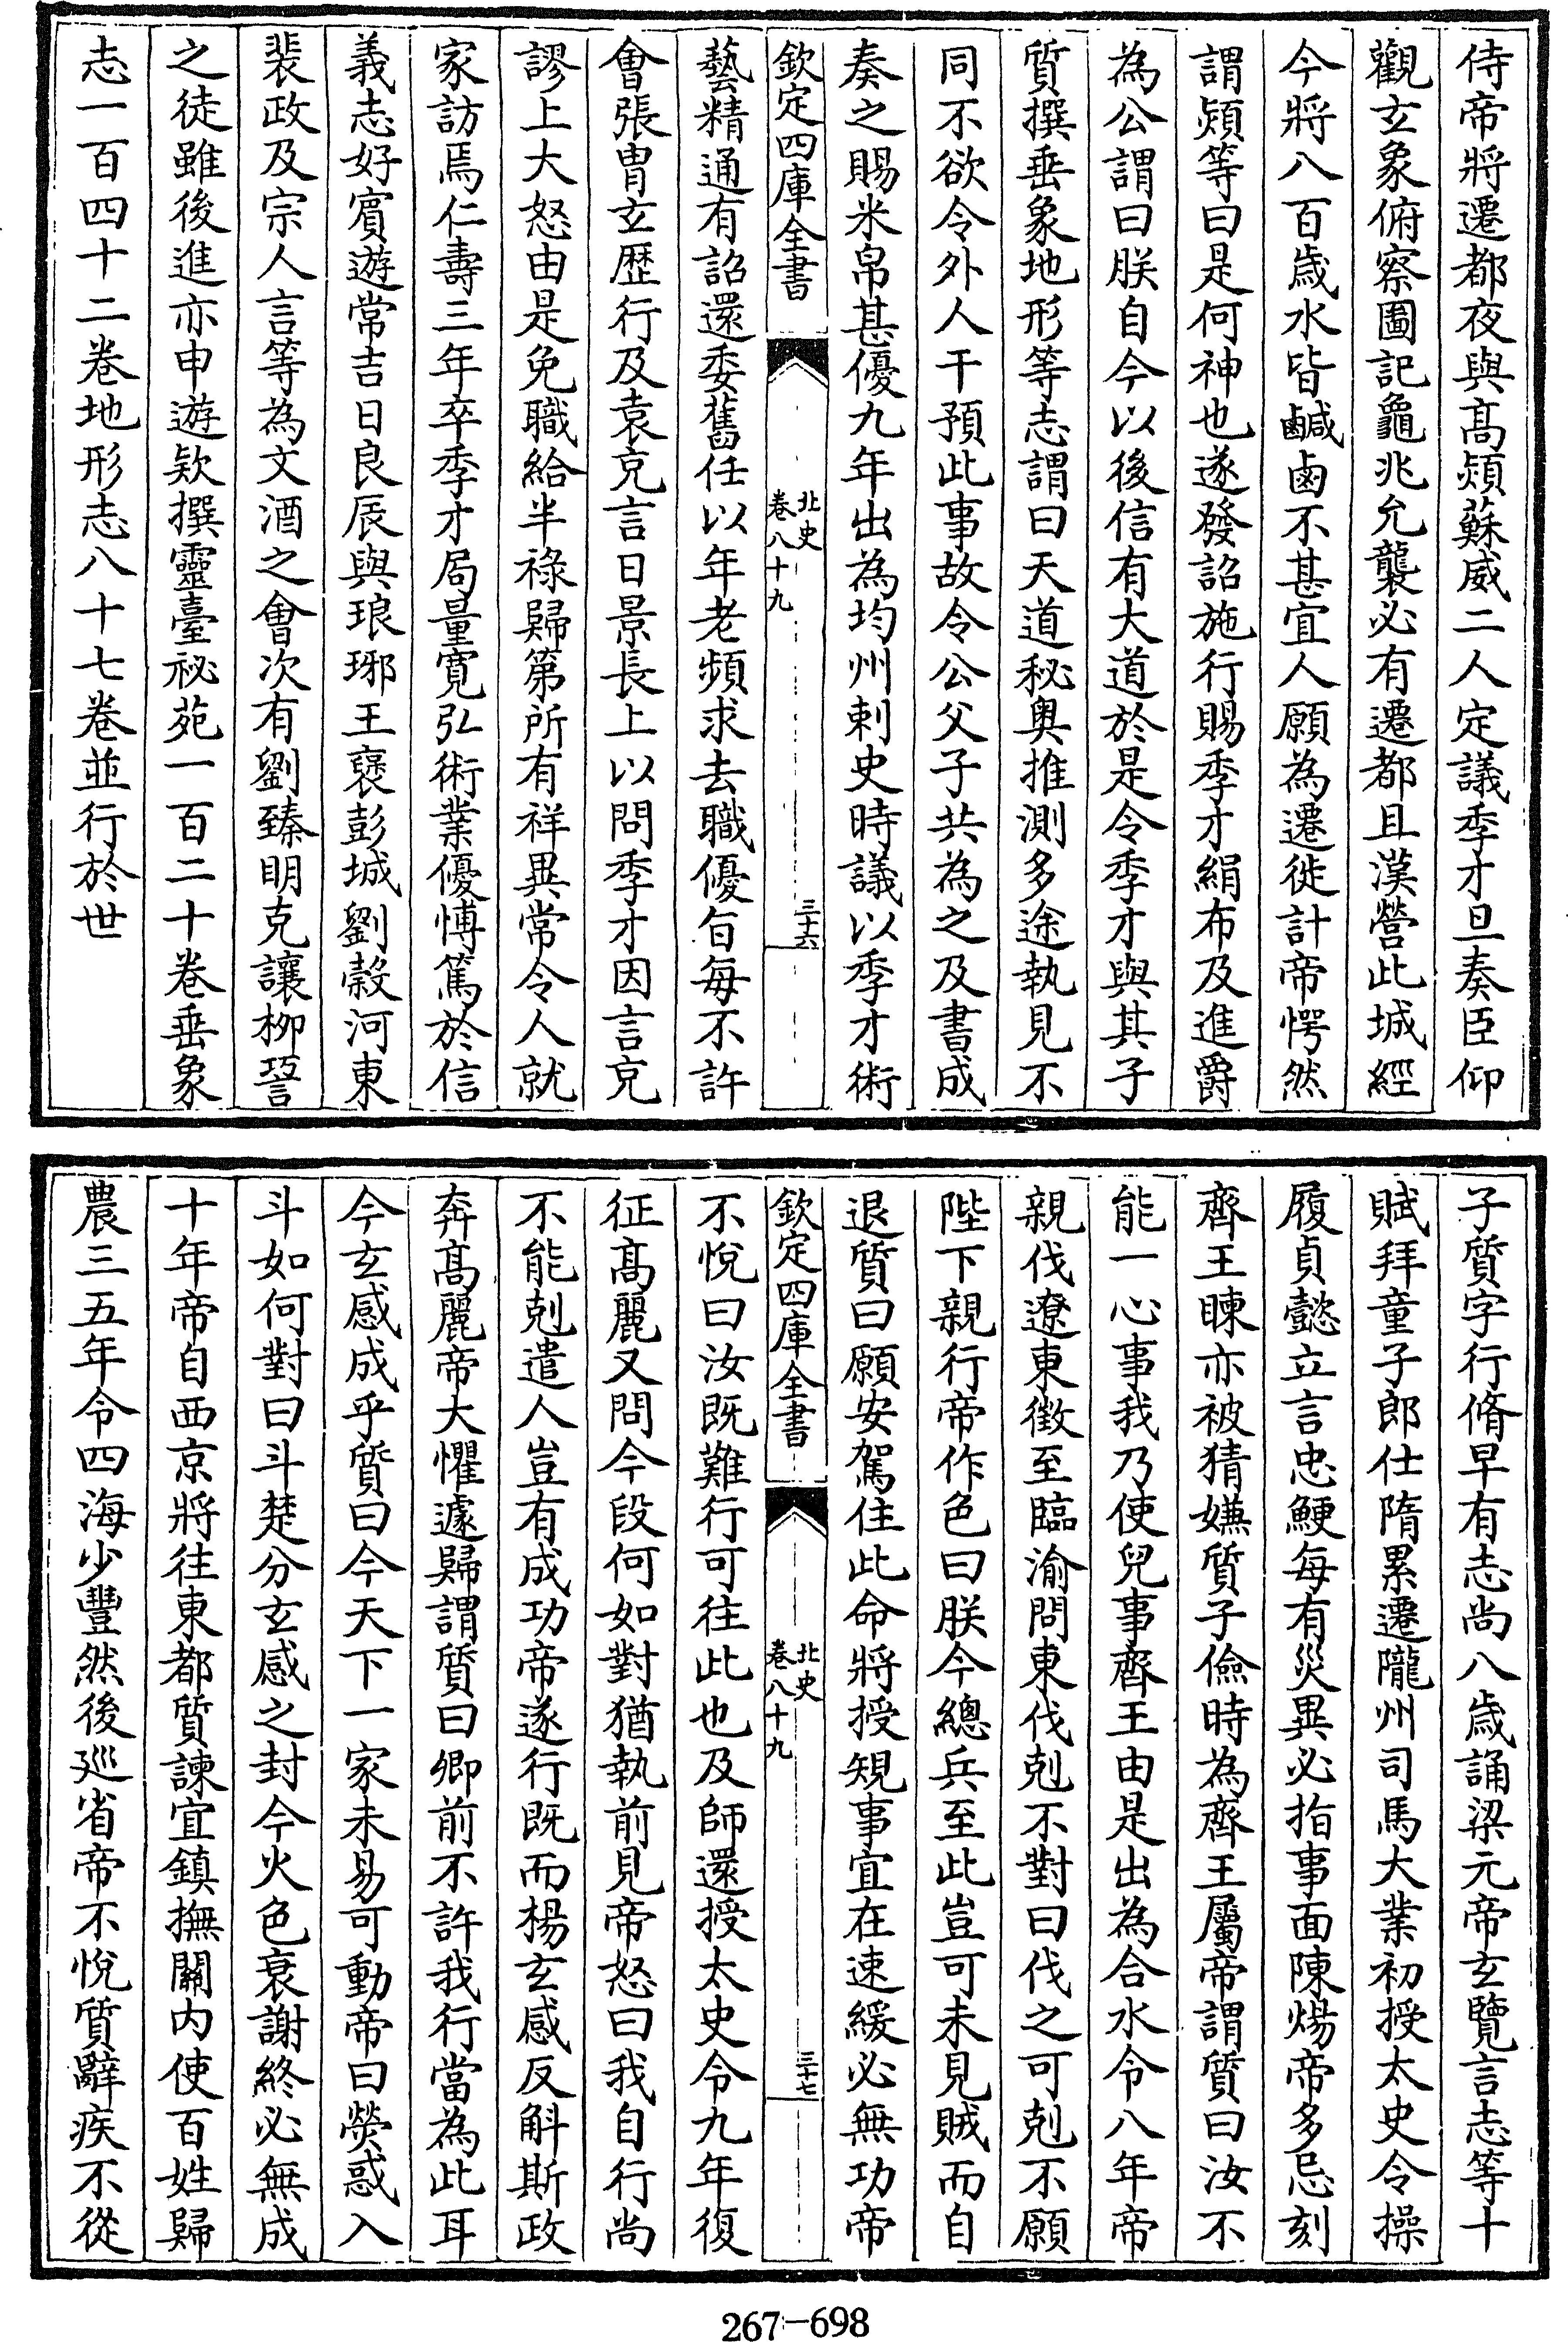 侍帝將遷都夜與髙熲蘇威二人定議季才旦奏臣仰
觀玄象俯察圖記龜兆允襲必有遷都且漢營此城經
今將八百歳水皆鹹鹵不甚宜人願為遷徙計帝愕然
謂熲等曰是何神也遂發詔施行賜季才絹布及進爵
為公謂曰朕自今以後信有大道於是令季才與其子
質撰垂象地形等志謂曰天道秘奥推測多途執見不
同不欲令外人干預此事故令公父子共為之及書成
奏之賜米帛甚優九年出為均州刺史時議以季才術
欽定四庫全書
北史
卷八十九
三十六
藝精通有詔還委舊任以年老頻求去職優旨每不許
㑹張胄玄歴行及袁充言日景長上以問季才因言充
謬上大怒由是免職給半祿歸第所有祥異常令人就
家訪焉仁壽三年卒季才局量寛弘術業優愽篤於信
義志好賓遊常吉日良辰與琅琊王褒彭城劉㲄河東
裴政及宗人言等為文酒之㑹次有劉臻明克讓柳䛒
之徒雖後進亦申遊欵撰靈臺秘苑一百二十卷垂象
志一百四十二卷地形志八十七卷並行於世
子質字行脩早有志尚八歳誦梁元帝玄覽言志等十
賦拜童子郎仕隋累遷隴州司馬大業初授太史令操
履貞懿立言忠鯁每有災異必指事面陳煬帝多忌刻
齊王暕亦被猜嫌質子儉時為齊王屬帝謂質曰汝不
能一心事我乃使兒事齊王由是出為合水令八年帝
親伐遼東徵至臨渝問東伐剋不對曰伐之可剋不願
陛下親行帝作色曰朕今總兵至此豈可未見賊而自
退質曰願安駕住此命將授規事宜在速緩必無功帝
欽定四庫全書
北史
卷八十九
三十七
不悅曰汝既難行可往此也及師還授太史令九年復
征髙麗又問今段何如對猶執前見帝怒曰我自行尚
不能剋遣人豈有成功帝遂行既而楊玄感反斛斯政
奔髙麗帝大懼遽歸謂質曰卿前不許我行當為此耳
今玄感成乎質曰今天下一家未易可動帝曰熒惑入
斗如何對曰斗楚分玄感之封今火色衰謝終必無成
十年帝自西京將往東都質諫宜鎮撫關内使百姓歸
農三五年令四海少豐然後廵省帝不悅質辭疾不從
267-698